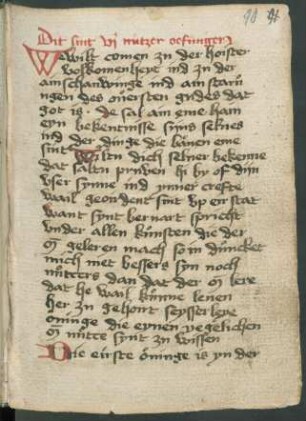 98 91
Dit sint vj nutzer oefungen
Wewilt comen zu der hoister
volkomenheyt ind zu der
anschauwinge ind anstaru
ngen des ouersten gudes dat
got is · de sal ane eme hain
eyn bekentnisse syns selues
ind der dinge die bauen eme
sint Wiltu dich seluer bekenne
dat saltu pruuen hi by of dijn
vser synne ind ynner crefte
wail geordent sint vp er stat
want synt bernart spricht
vnder allen kunsten die der
mach so in duncket
mich niet bessers syn noch
nutzers dan dat der lere
dat he wail kunne leuen
her zu gehoirt seysserleye
oninge die eynen yegelichen
nutte synt zu wissen
Die eirste oninge is yn der